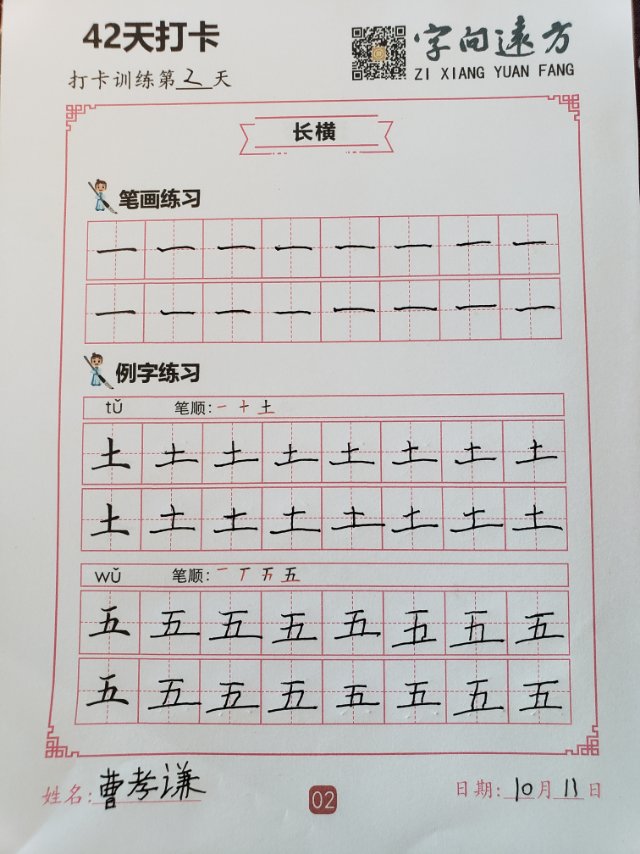 42天打卡
字向遠方
打卡训练第2天
ZI XIANG YUAN FANG
长横
笔画练习
一 一 一 一 一 一 一 一
一 一 一 一 一 一 一 一
例字练习
tǔ 笔顺: 一 十 土
土 土 土 土 土 土 土 土
土 土 土 土 土 土 土 土
wǔ 笔顺: 一 丅 五 五
五 五 五 五 五 五 五 五
五 五 五 五 五 五 五 五
姓名: 曹孝谦
02
日期: 10月11日